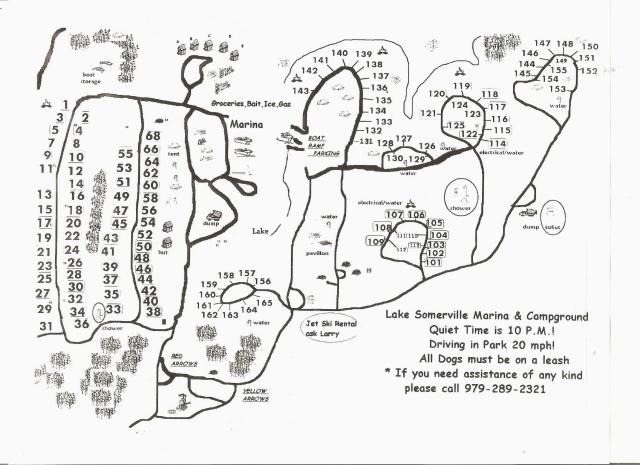 A B C D E
boat
storage
Groceries,Bait,Ice,Gas
Marina
BOAT
RAMP
PARKING
Lake
tent
hut
dump
shower
1
3 2
5 4
7 8
9 10
11 12
13 14
15 16
17 18
19 20
21 22
23 24
25 26
27 28
29 30
31 32
34
36
55
53
51
49
47
45
43
41
39
37
35
33
68
66
64
62
60
58
56
54
52
50
48
46
44
42
40
38
143
142
141
140
139
138
137
136
135
134
133
132
131
130
129
128
127
126
water
water
120
119
118
117
116
115
114
121
124
123
125
122
electrical/water
147 148 150
146 149 151
144 155 152
145 154
153
water
shower
dump
toilet
electrical/water
107 106
108 105
109 104
103
102
101
111 110
112 113
water
pavilion
158 157
159 156
160 165
161 162 163 164
water
Jet Ski Rental
ask Larry
RED
ARROWS
YELLOW
ARROWS
Lake Somerville Marina & Campground
Quiet Time is 10 P.M.!
Driving in Park 20 mph!
All Dogs must be on a leash
* If you need assistance of any kind
please call 979-289-2321